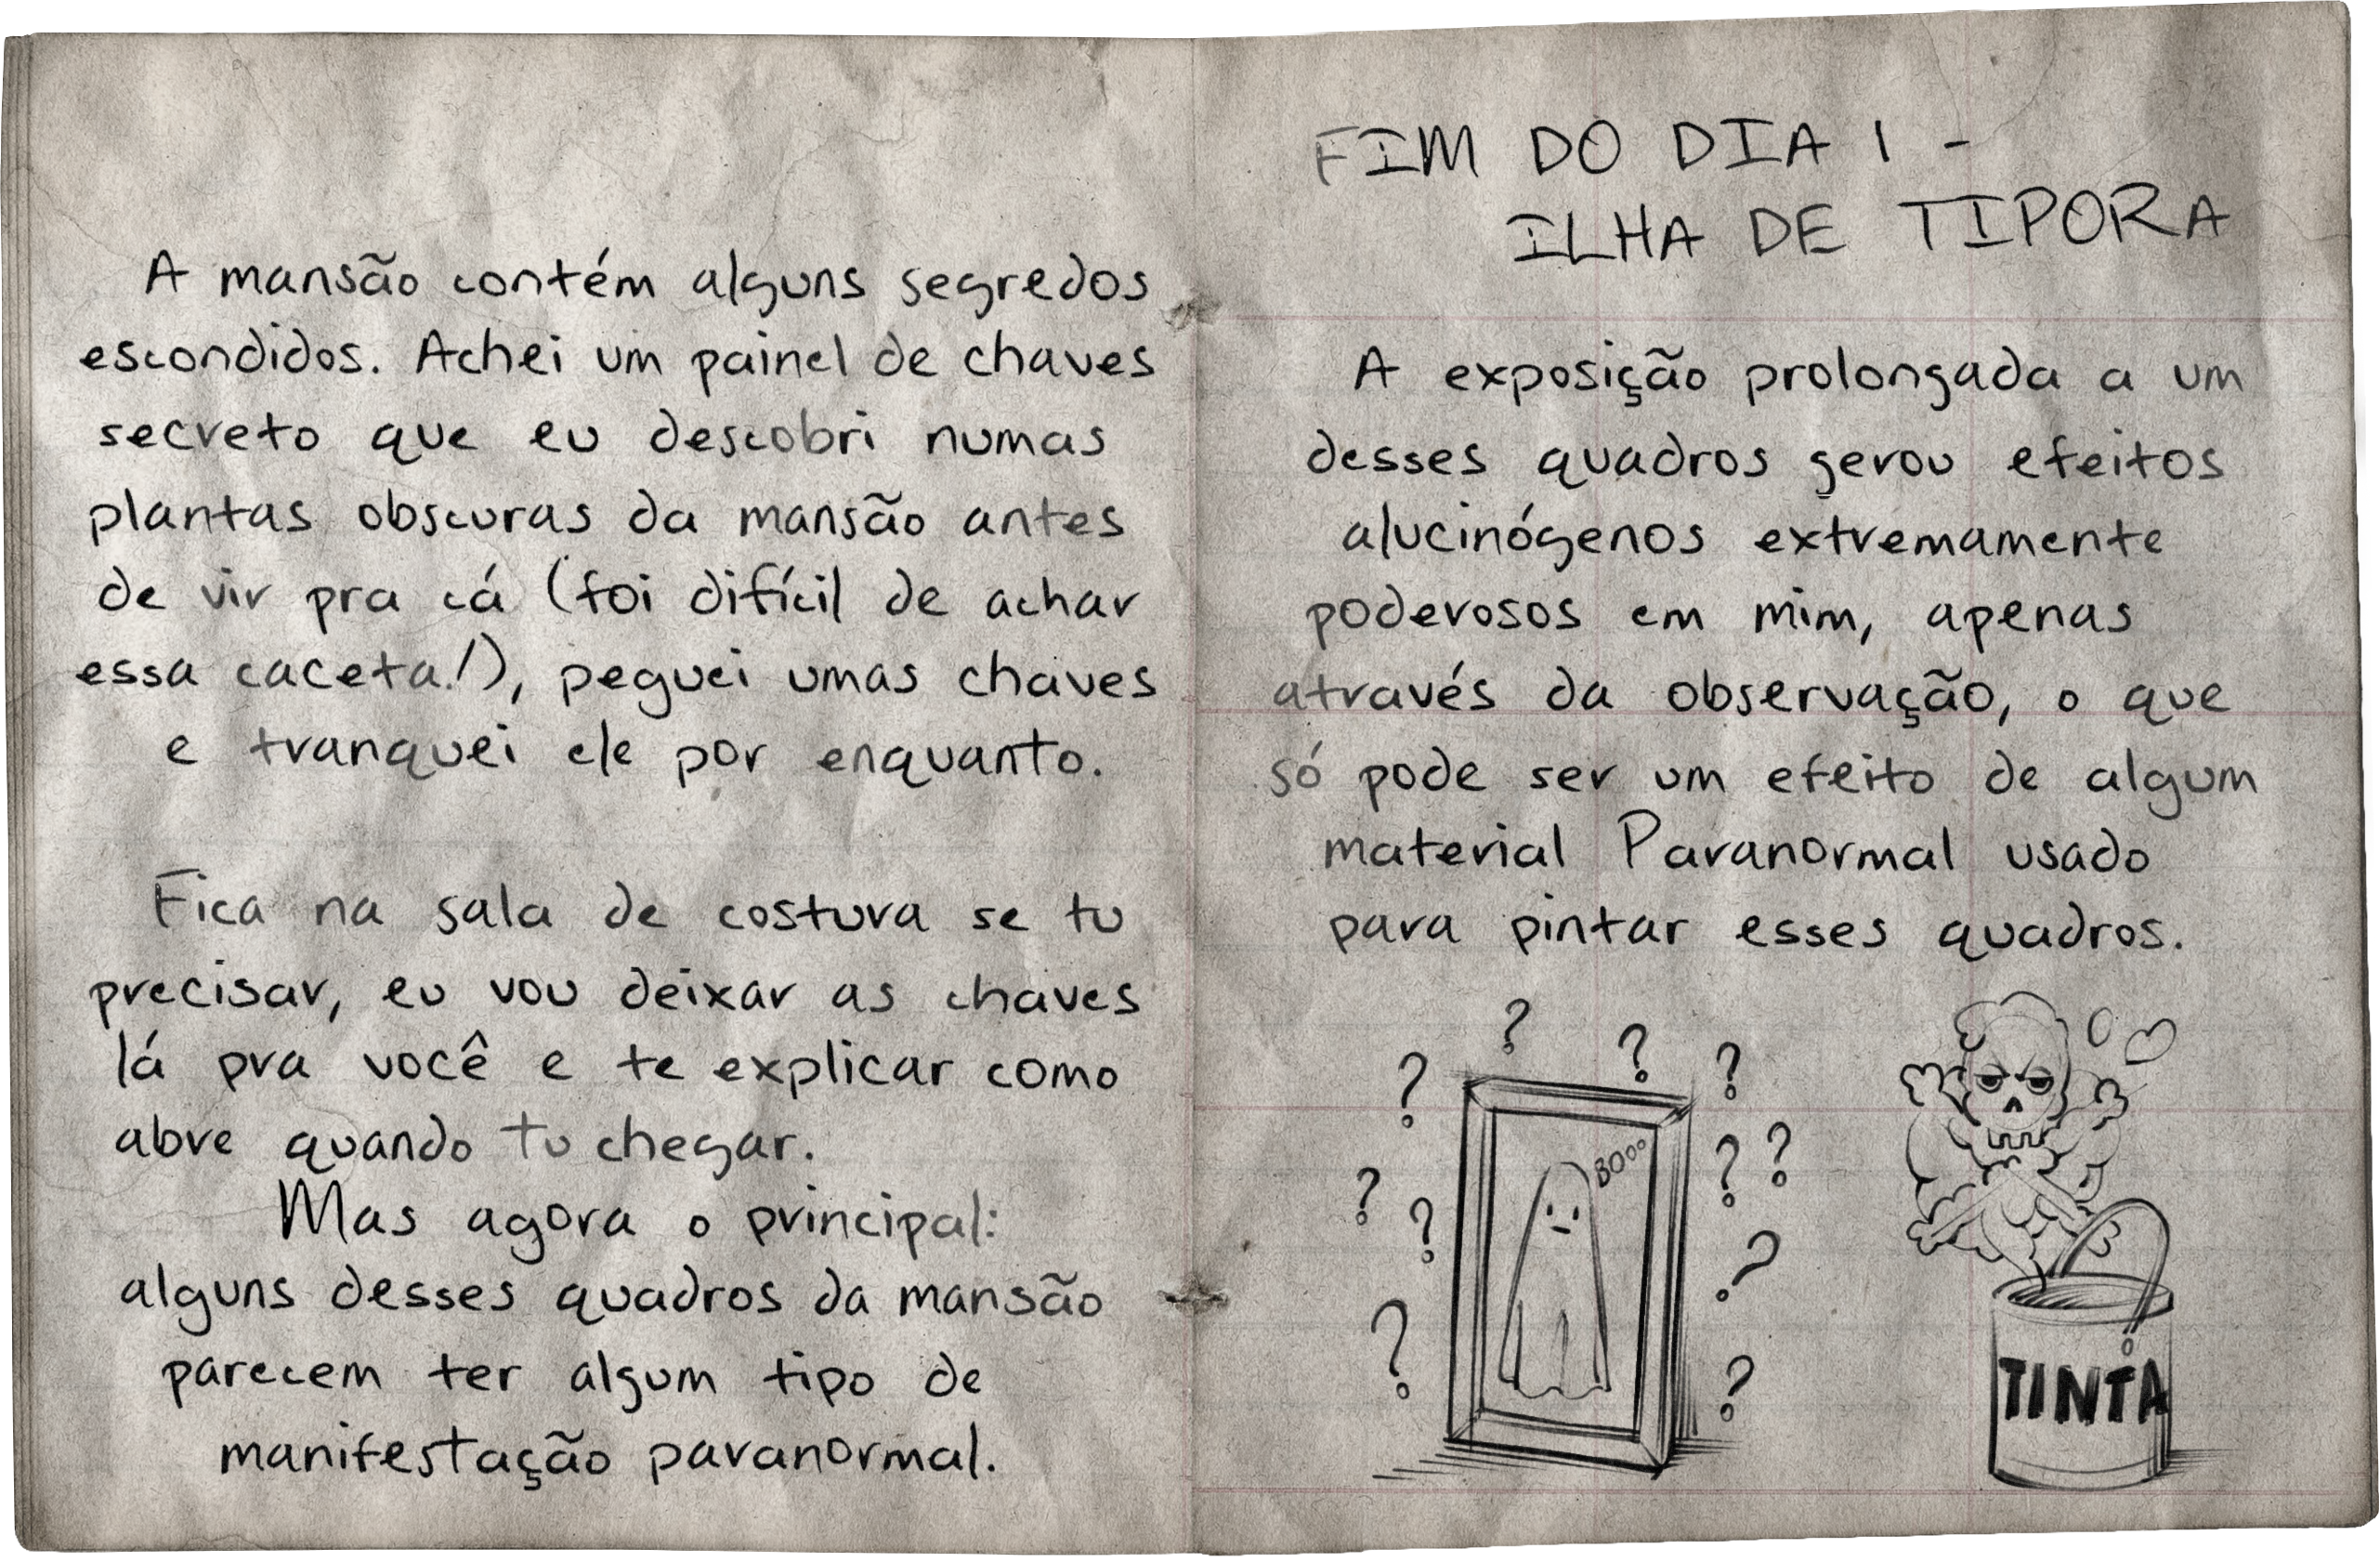 A mansão contém alguns segredos
escondidos. Achei um painel de chaves
secreto que eu descobri numas
plantas obscuras da mansão antes
de vir pra cá (foi difícil de achar
essa caceta!), peguei umas chaves
e tranquei ele por enquanto.
Fica na sala de costura se tu
precisar, eu vou deixar as chaves
lá pra você e te explicar como
abre quando tu chegar.
Mas agora o principal:
alguns desses quadros da mansão
parecem ter algum tipo de
manifestação paranormal.
FIM DO DIA 1 -
ILHA DE TIPORA
A exposição prolongada a um
desses quadros gerou efeitos
alucinógenos extremamente
poderosos em mim, apenas
através da observação, o que
só pode ser um efeito de algum
material Paranormal usado
para pintar esses quadros.
? ? ? ?
? ? ?
? ?
? ?
? ?
BOooo
TINTA